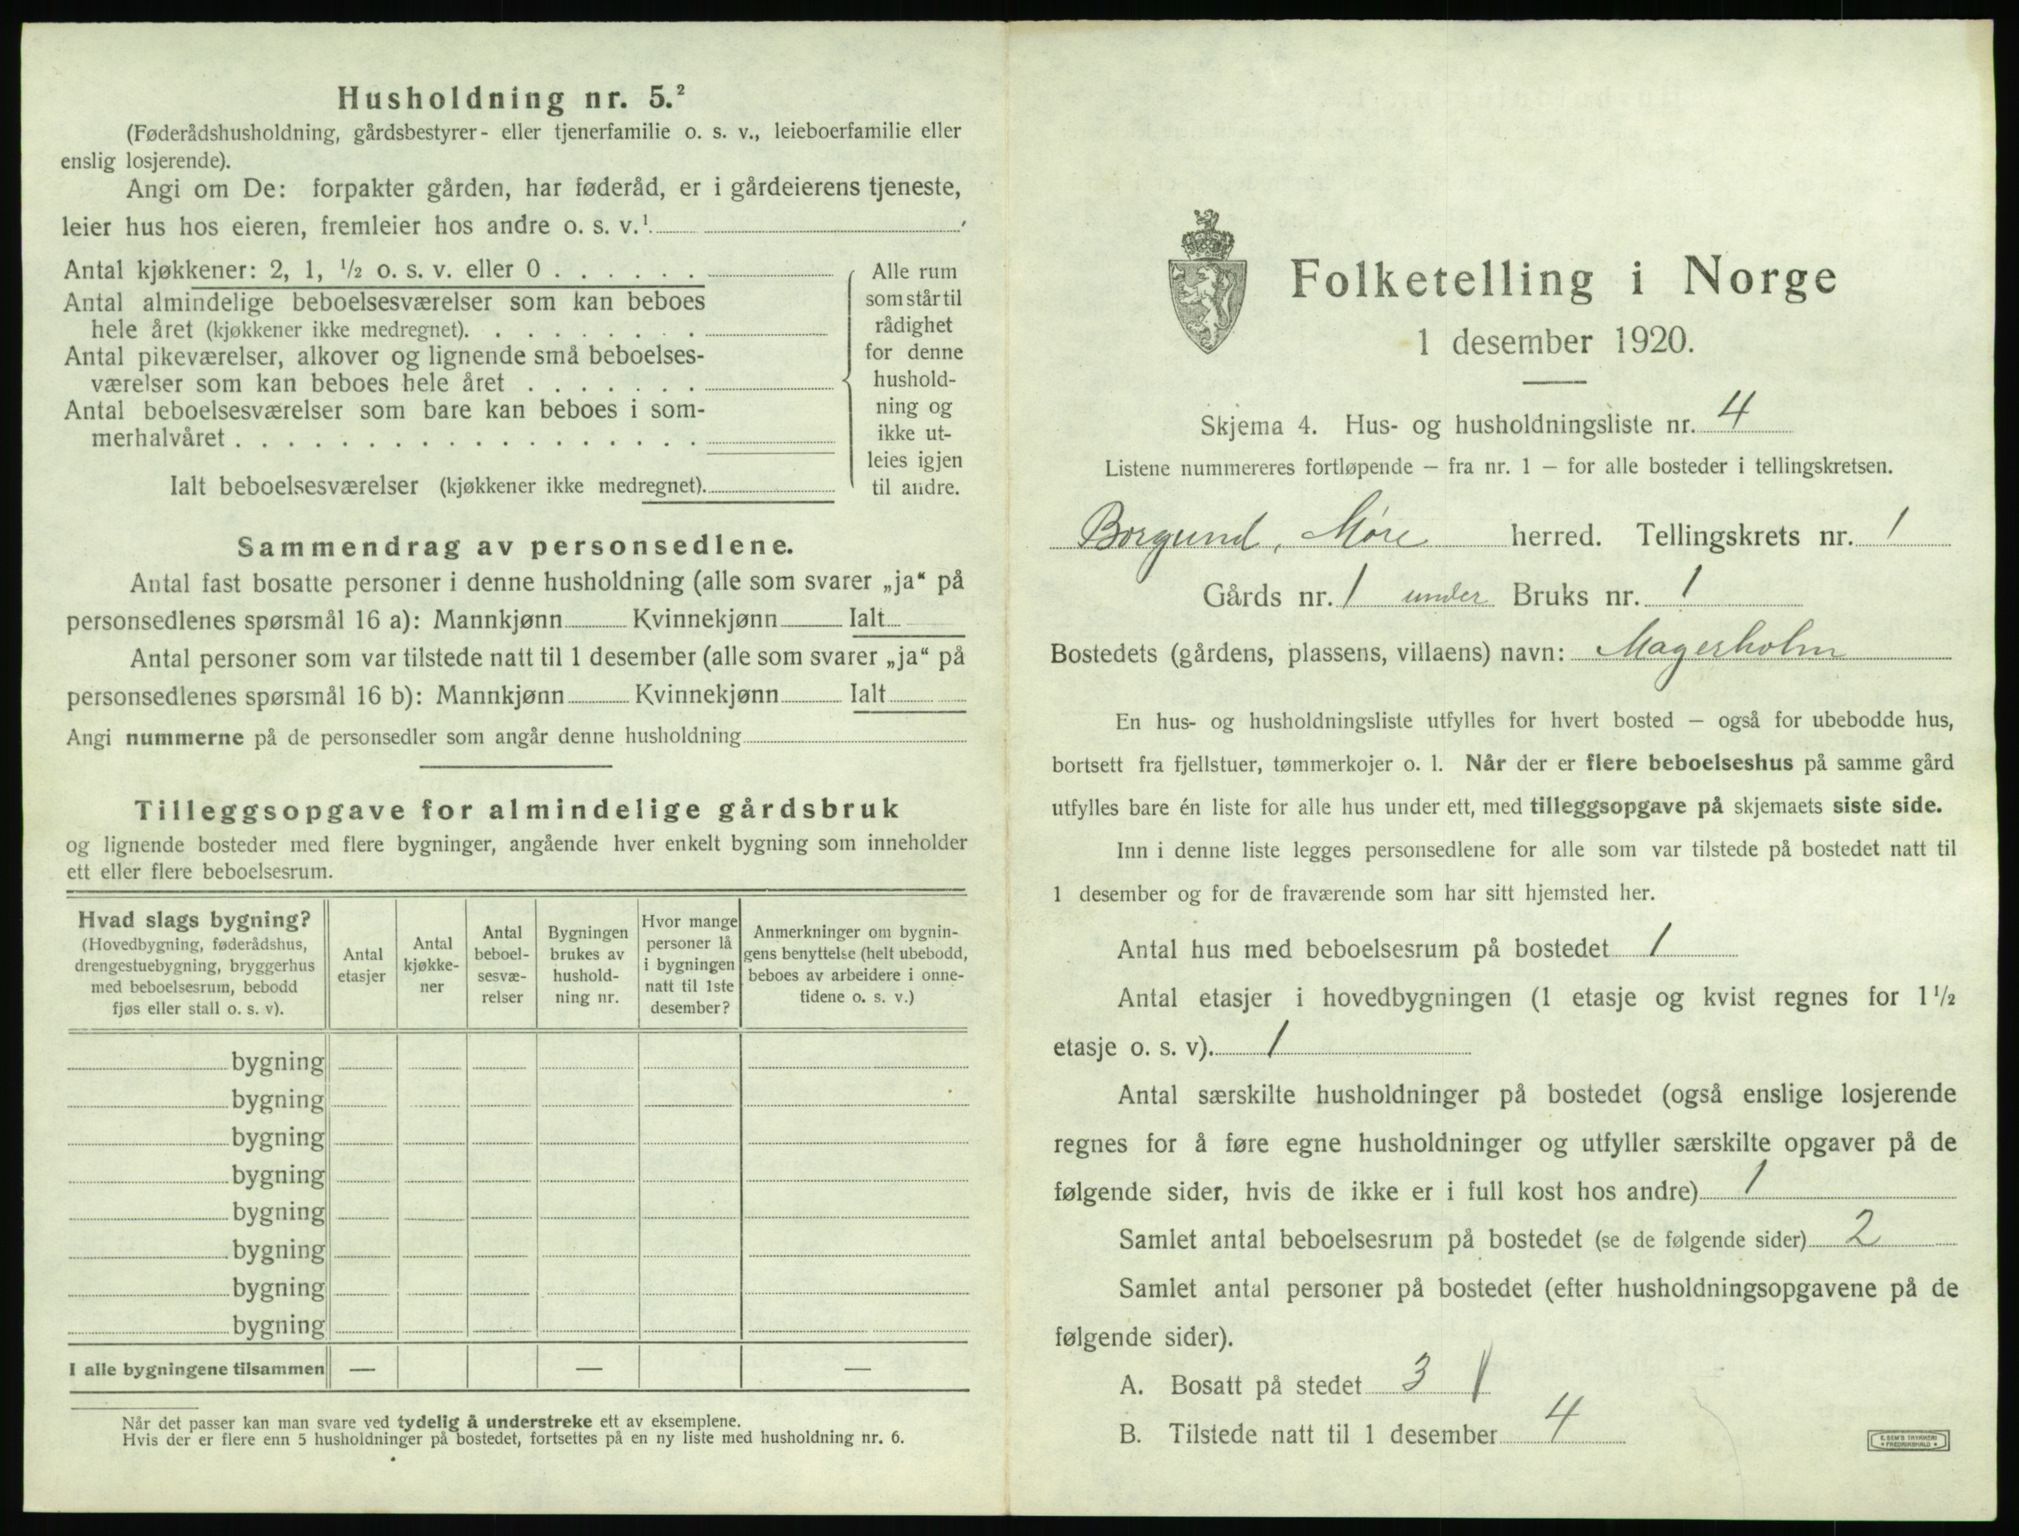 Husholdning nr. 5.²
(Føderådshusholdning, gårdsbestyrer- eller tjenerfamilie o. s. v., leieboerfamilie eller
enslig losjerende).
Angi om De: forpakter gården, har føderåd, er i gårdeierens tjeneste,
leier hus hos eieren, fremleier hos andre o. s. v.¹
Antal kjøkkener: 2, 1, ½ o. s. v. eller 0 . . . . . .
Antal almindelige beboelsesværelser som kan beboes
hele året (kjøkkener ikke medregnet). . . . . . . . .
Antal pikeværelser, alkover og lignende små beboelses-
værelser som kan beboes hele året . . . . . . .
Antal beboelsesværelser som bare kan beboes i som-
merhalvåret . . . . . . . . . . . . . . . . .
Ialt beboelsesværelser (kjøkkener ikke medregnet).
Alle rum
som står til
rådighet
for denne
hushold-
ning og
ikke ut-
leies igjen
til andre.
Sammendrag av personsedlene.
Antal fast bosatte personer i denne husholdning (alle som svarer „ja“ på
personsedlenes spørsmål 16 a): Mannkjønn Kvinnekjønn Ialt
Antal personer som var tilstede natt til 1 desember (alle som svarer „ja“ på
personsedlenes spørsmål 16 b): Mannkjønn Kvinnekjønn Ialt
Angi nummerne på de personsedler som angår denne husholdning
Tilleggsopgave for almindelige gårdsbruk
og lignende bosteder med flere bygninger, angående hver enkelt bygning som inneholder
ett eller flere beboelsesrum.
Hvad slags bygning?
(Hovedbygning, føderådshus,
drengestuebygning, bryggerhus
med beboelsesrum, bebodd
fjøs eller stall o. s. v).
Antal
etasjer
Antal
kjøkke-
ner
Antal
beboel-
sesvæ-
relser
Bygningen
brukes av
hushold-
ning nr.
Hvor mange
personer lå
i bygningen
natt til 1ste
desember?
Anmerkninger om bygnin-
gens benyttelse (helt ubebodd,
beboes av arbeidere i onne-
tidene o. s. v.)
bygning
bygning
bygning
bygning
bygning
bygning
bygning
bygning
I alle bygningene tilsammen — — —
Når det passer kan man svare ved tydelig å understreke ett av eksemplene.
Hvis der er flere enn 5 husholdninger på bostedet, fortsettes på en ny liste med husholdning nr. 6.
Folketelling i Norge
1 desember 1920.
Skjema 4. Hus- og husholdningsliste nr. 4
Listene nummereres fortløpende – fra nr. 1 – for alle bosteder i tellingskretsen.
Borgund, Møre herred. Tellingskrets nr. 1
Gårds nr. 1 under Bruks nr. 1
Bostedets (gårdens, plassens, villaens) navn: Magerholm
En hus- og husholdningsliste utfylles for hvert bosted – også for ubebodde hus,
bortsett fra fjellstuer, tømmerkojer o. l. Når der er flere beboelseshus på samme gård
utfylles bare én liste for alle hus under ett, med tilleggsopgave på skjemaets siste side.
Inn i denne liste legges personsedlene for alle som var tilstede på bostedet natt til
1 desember og for de fraværende som har sitt hjemsted her.
Antal hus med beboelsesrum på bostedet 1
Antal etasjer i hovedbygningen (1 etasje og kvist regnes for 1½
etasje o. s. v). 1
Antal særskilte husholdninger på bostedet (også enslige losjerende
regnes for å føre egne husholdninger og utfyller særskilte opgaver på de
følgende sider, hvis de ikke er i full kost hos andre) 1
Samlet antal beboelsesrum på bostedet (se de følgende sider) 2
Samlet antal personer på bostedet (efter husholdningsopgavene på de
følgende sider).
A. Bosatt på stedet 3 1
B. Tilstede natt til 1 desember 4
E. SEM'S TRYKKERI
FREDRIKSHALD